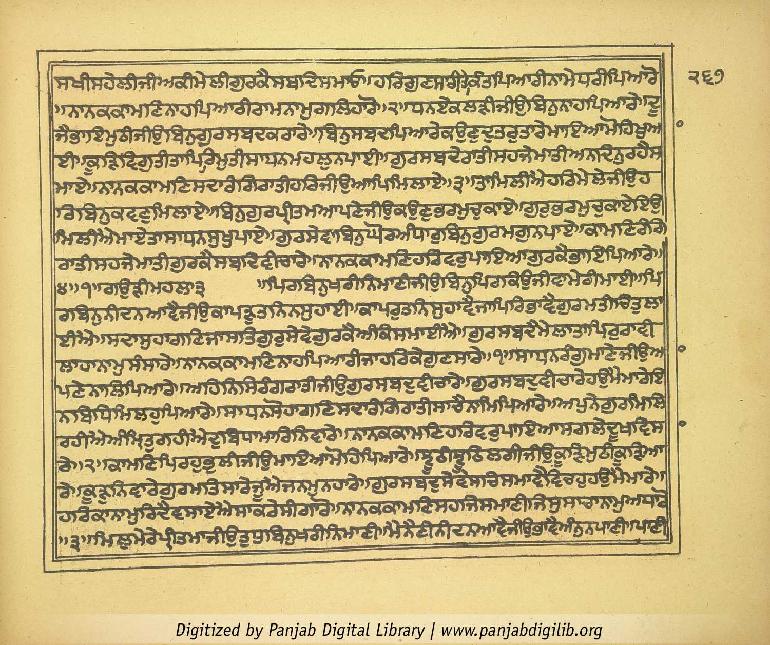 ਸਖੀਸਹੇਲੀਜੀਅਕੀਮੇਲੀਗੁਰਕੈਸਬਦਿਸਮਾਓ॥ਹਰਿਗੁਣਸਾਰੀਤਾਕੰਤਪਿਆਰੀਨਾਮੇਧਰੀਪਿਆਰੋ
॥ਨਾਨਕਕਾਮਣਿਨਾਹਪਿਆਰੀਰਾਮਨਾਮੁਗਲਿਹਾਰੋ॥੨॥ਧਨਏਕਲੜੀਜੀਉਬਿਨੁਨਾਹਪਿਆਰੇ॥ਦੂ
ਜੈਭਾਇਮੁਠੀਜੀਉਬਿਨੁਗੁਰਸਬਦਕਰਾਰੇ॥ਬਿਨੁਸਬਦਪਿਆਰੇਕਉਣੁਦੁਤਰੁਤਾਰੇਮਾਇਆਮੋਹਿਖੁਆ
ਈ॥ਕੂੜਿਵਿਗੁਤੀਤਾਪਿਰਿਮੁਤੀਸਾਧਨਮਹਲੁਨਪਾਈ॥ਗੁਰਸਬਦੇਰਾਤੀਸਹਜੇਮਾਤੀਅਨਦਿਨੁਰਹੈਸ
ਮਾਏ॥ਨਾਨਕਕਾਮਣਿਸਦਾਰੰਗਿਰਾਤੀਹਰਿਜੀਉਆਪਿਮਿਲਾਏ॥੩॥ਤਾਮਿਲੀਐਹਰਿਮੇਲੇਜੀਉਹ
ਰਿਬਿਨੁਕਵਣੁਮਿਲਾਏ॥ਬਿਨੁਗੁਰਪ੍ਰੀਤਮਆਪਣੇਜੀਉਕਉਣੁਭਰਮੁਚੁਕਾਏ॥ਗੁਰੁਭਰਮੁਚੁਕਾਏਇਉ
ਮਿਲੀਐਮਾਏਤਾਸਾਧਨਸੁਖੁਪਾਏ॥ਗੁਰਸੇਵਾਬਿਨੁਘੋਰਅੰਧਾਰੁਬਿਨੁਗੁਰਮਗੁਨਪਾਏ॥ਕਾਮਣਿਰੰਗਿ
ਰਾਤੀਸਹਜੇਮਾਤੀਗੁਰਕੈਸਬਦਿਵੀਚਾਰੇ॥ਨਾਨਕਕਾਮਣਿਹਰਿਵਰੁਪਾਇਆਗੁਰਕੈਭਾਇਪਿਆਰੇ॥
੪॥੧॥ਗਉੜੀਮਹਲਾ੩ ॥ਪਿਰਬਿਨੁਖਰੀਨਿਮਾਣੀਜੀਉਬਿਨੁਪਿਰਕਿਉਜੀਵਾਮੇਰੀਮਾਈ॥ਪਿ
ਰਬਿਨੁਨੀਦਨਆਵੈਜੀਉਕਾਪੜੁਤਨਿਨਸੁਹਾਈ॥ਕਾਪਰੁਤਨਿਸੁਹਾਵੈਜਾਪਿਰਭਾਵੈਗੁਰਮਤੀਚਿਤੁਲਾ
ਈਐ॥ਸਦਾਸੁਹਾਗਣਿਜਾਸਤਿਗੁਰੁਸੇਵੇਗੁਰਕੈਅੰਕਿਸਮਾਈਐ॥ਗੁਰਸਬਦੈਮੇਲਾਤਾਪਿਰੁਰਾਵੀ
ਲਾਹਾਨਾਮੁਸੰਸਾਰੇ॥ਨਾਨਕਕਾਮਣਿਨਾਹਪਿਆਰੀਜਾਹਰਿਕੇਗੁਣਸਾਰੇ॥੧॥ਸਾਧਨਰੰਗੁਮਾਣੇਜੀਉਆ
ਪਣੇਨਾਲਿਪਿਆਰੇ॥ਅਹਿਨਿਸਿਰੰਗਿਰਾਤੀਜੀਉਗੁਰਸਬਦੁਵੀਚਾਰੇ॥ਗੁਰਸਬਦੁਵੀਚਾਰੇਹਉਮੈਮਾਰੇਇ
ਨਬਿਧਿਮਿਲਹੁਪਿਆਰੇ॥ਸਾਧਨਸੋਹਾਗਣਿਸਦਾਰੰਗਿਰਾਤੀਸਾਚੈਨਾਮਿਪਿਆਰੇ॥ਅਪੁਨੇਗੁਰਮਿਲਿ
ਰਹੀਐਅੰਮ੍ਰਿਤੁਗਹੀਐਦੁਬਿਧਾਮਾਰਿਨਿਵਾਰੇ॥ਨਾਨਕਕਾਮਣਿਹਰਿਵਰੁਪਾਇਆਸਗਲੇਦੂਖਵਿਸਾ
ਰੇ॥੨॥ਕਾਮਣਿਪਿਰਹੁਭੁਲੀਜੀਉਮਾਇਆਮੋਹਿਪਿਆਰੇ॥ਝੂਠੀਝੂਠਿਲਗੀਜੀਉਕੂੜਿਮੁਠੀਕੂੜਿਆ
ਰੇ॥ਕੂੜੁਨਿਵਾਰੇਗੁਰਮਤਿਸਾਰੇਜੂਐਜਨਮੁਨਹਾਰੇ॥ਗੁਰਸਬਦੁਸੇਵੇਸਚਿਸਮਾਵੈਵਿਚਹੁਹਉਮੈਮਾਰੇ॥
ਹਰਿਕਾਨਾਮੁਰਿਦੈਵਸਾਏਐਸਾਕਰੇਸੀਗਾਰੋ॥ਨਾਨਕਕਾਮਣਿਸਹਜਿਸਮਾਣੀਜਿਸੁਸਾਚਾਨਾਮੁਅਧਾਰੋ
॥੩॥ਮਿਲੁਮੇਰੇਪ੍ਰੀਤਮਾਜੀਉਤੁਧੁਬਿਨੁਖਰੀਨਿਮਾਣੀ॥ਮੈਨੈਣੀਨੀਦਨਆਵੈਜੀਉਭਾਵੈਅੰਨੁਨਪਾਣੀ॥ਪਾਣੀ
੨੬੭
Digitized by Panjab Digital Library | www.panjabdigilib.org